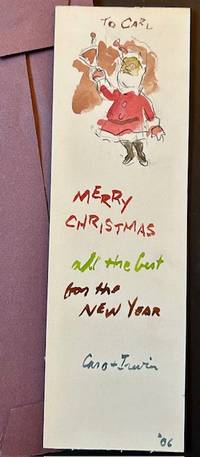 TO CARL
MERRY
CHRISTMAS
all the best
for the
NEW YEAR
Caro + Irwin
'06